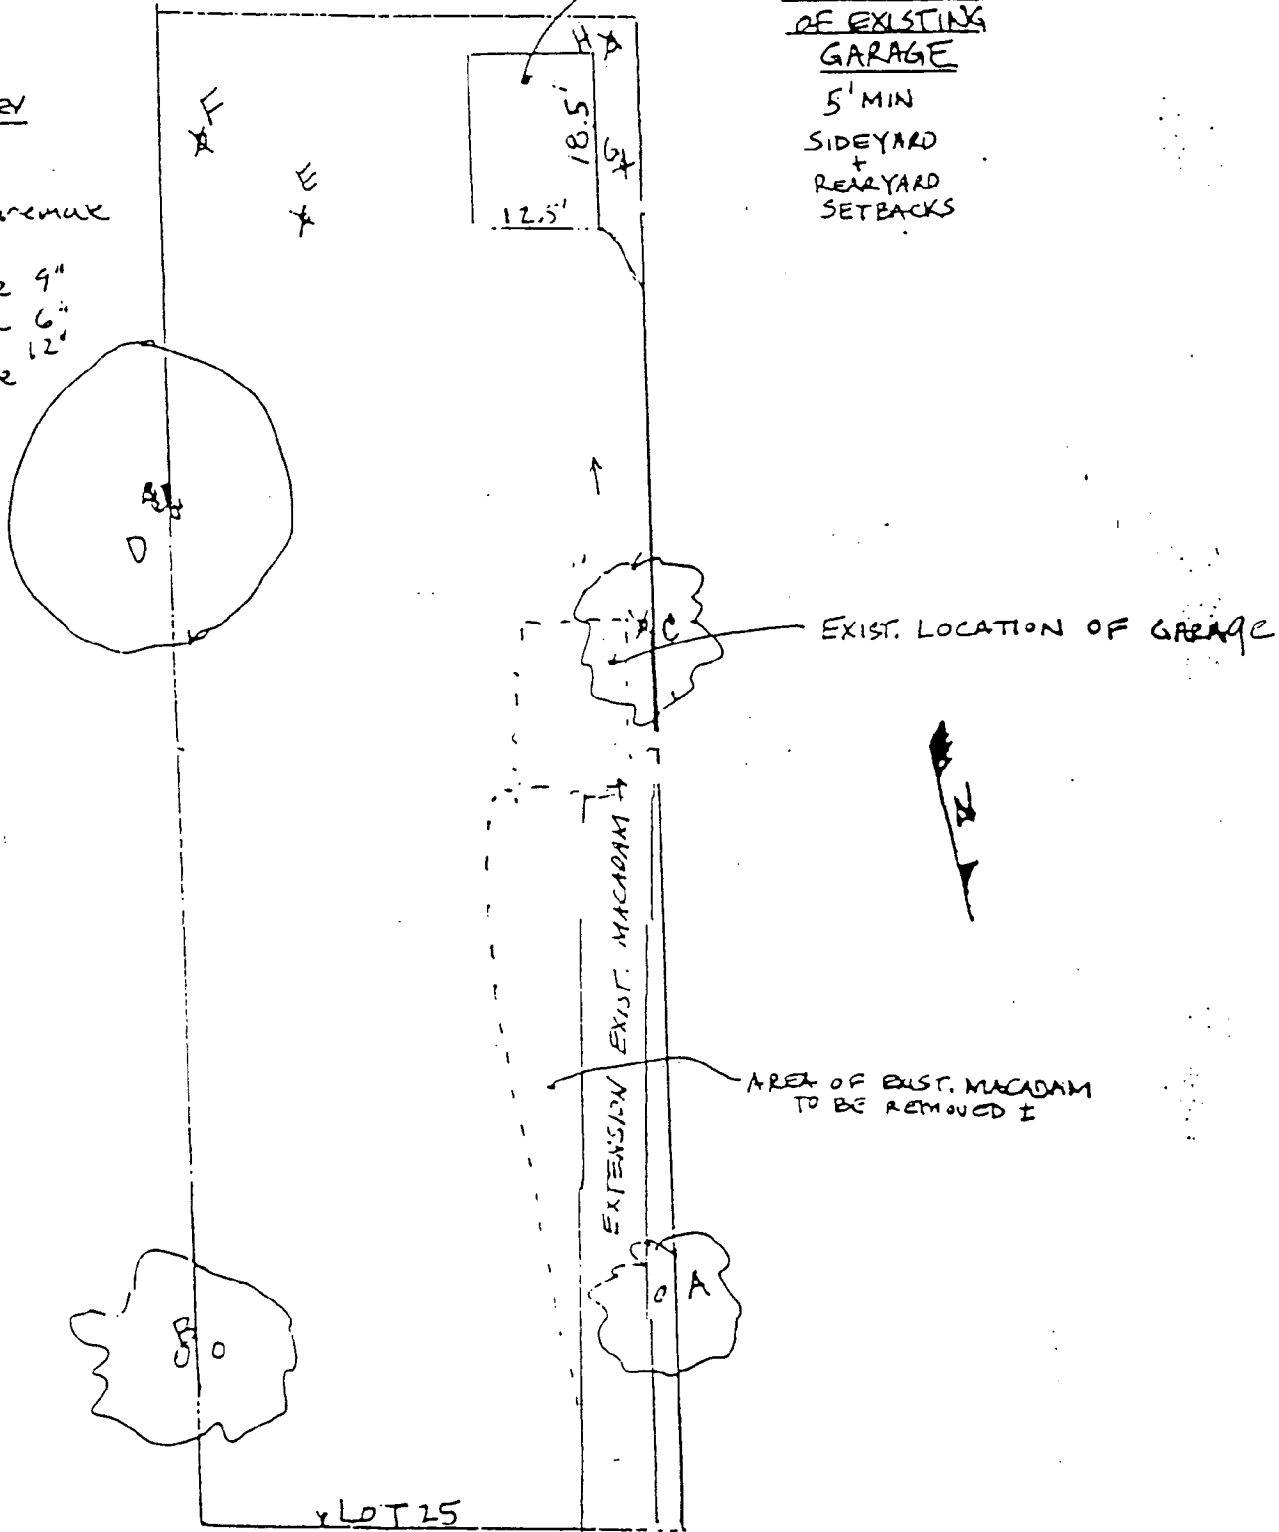 OF EXISTING
GARAGE
5' MIN
SIDEYARD
+
REARYARD
SETBACKS
H
18.5'
G
12.5'
F
E
9"
6"
12"
D
C
EXIST. LOCATION OF GARAGE
N
EXTENSION EXIST. MACADAM
AREA OF EXIST. MACADAM
TO BE REMOVED ±
A
B
LOT 25